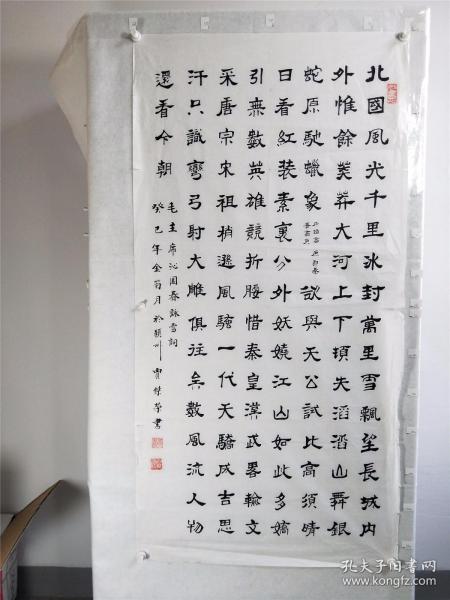 北國風光千里冰封萬里雪飄望長城内
外惟餘莽莽大河上下頓失滔滔山舞銀
蛇原馳蠟象欲與天公試比高須晴
日看紅装素裹分外妖嬈江山如此多嬌
引無數英雄競折腰惜秦皇漢武畧輸文
采唐宗宋祖稍遜風騷一代天驕成吉思
汗只識彎弓射大雕俱往矣數風流人物
還看今朝
毛主席沁園春詠雪詞
癸巳年金菊月於州賈傑書
孔夫子旧书网
www.kongfz.com